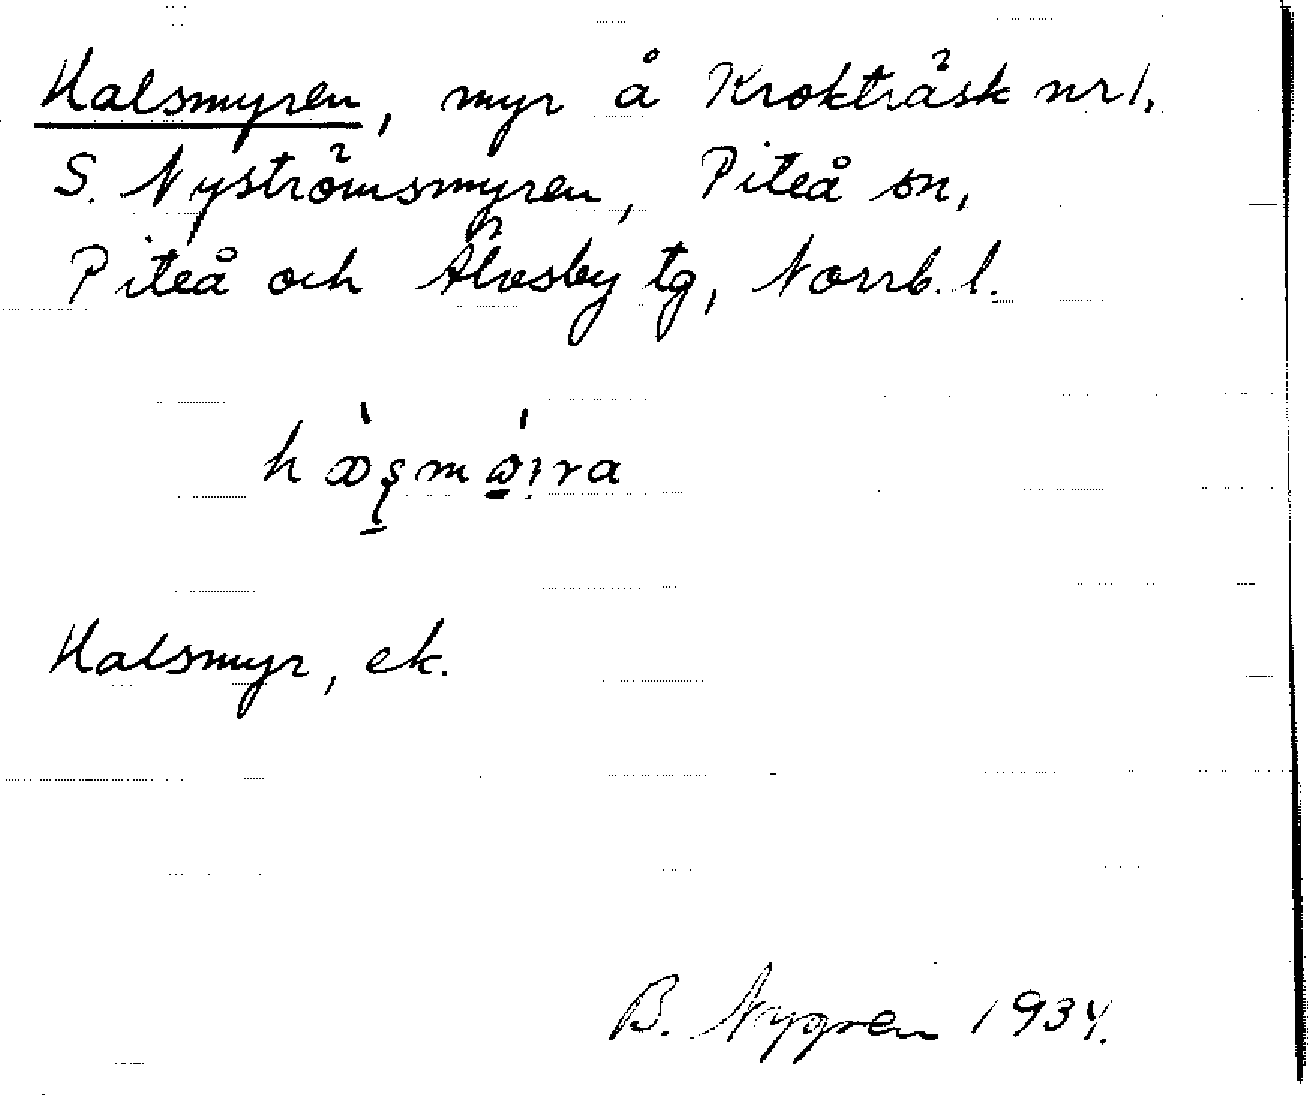 Halsmyren, myr å Krokträsk nr 1.
S. Nyströmsmyren, Piteå sn,
Piteå och Älvsby tg, Norrb. l.
Halsmyr, ek.
B. Nygren 1934.